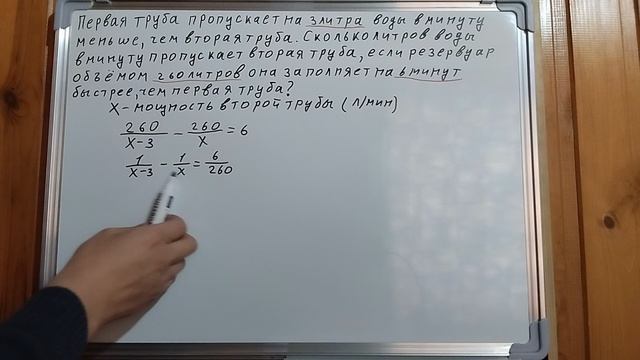 Первая труба пропускает на 3 литра воды в минуту
меньше, чем вторая труба. Сколько литров воды
в минуту пропускает вторая труба, если резервуар
объёмом 260 литров она заполняет на 6 минут
быстрее, чем первая труба?
X - мощность второй трубы (л/мин)
260/(X-3) - 260/X = 6
1/(X-3) - 1/X = 6/260